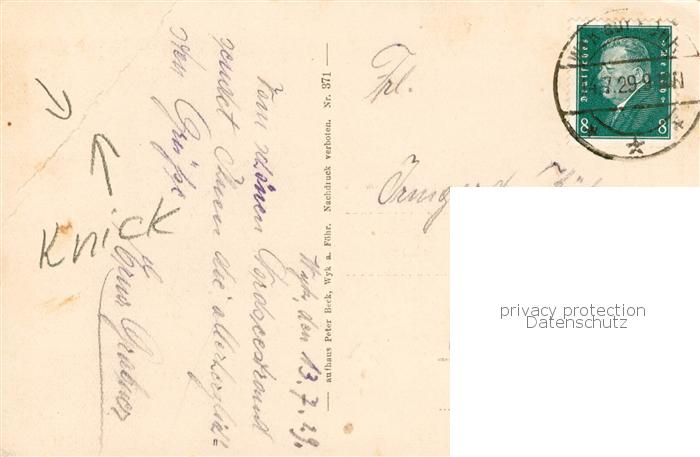 Wyk, den 13.7.29.
Vom schönen Nordseestrand
sendet Ihnen die allerherzlich=
sten Grüße
Knick
aufhaus Peter Beck, Wyk a. Föhr. Nachdruck verboten. Nr. 371
Frl.
Deutsches Reich
8 8
7.29.9
privacy protection
Datenschutz